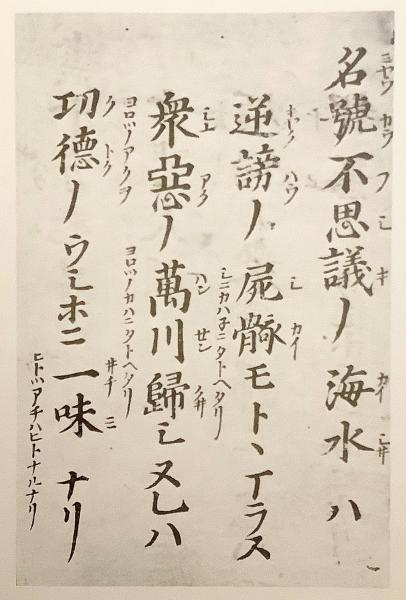 ミヤウ カウ フ シ キ カイ スヰ
名號不思議ノ海水ハ
キヤク ハウ シ カイ
逆謗ノ屍骸モトヽマラス
シニカハネニタトヘタリ
シユ アク ハン セン クヰ
衆惡ノ萬川歸シヌレハ
ヨロツノアクヲ ヨロツノカハニタトヘタリ
ク トク ヰチ ミ
功德ノウシホニ一味ナリ
ヒトツアチハヒトナルナリ